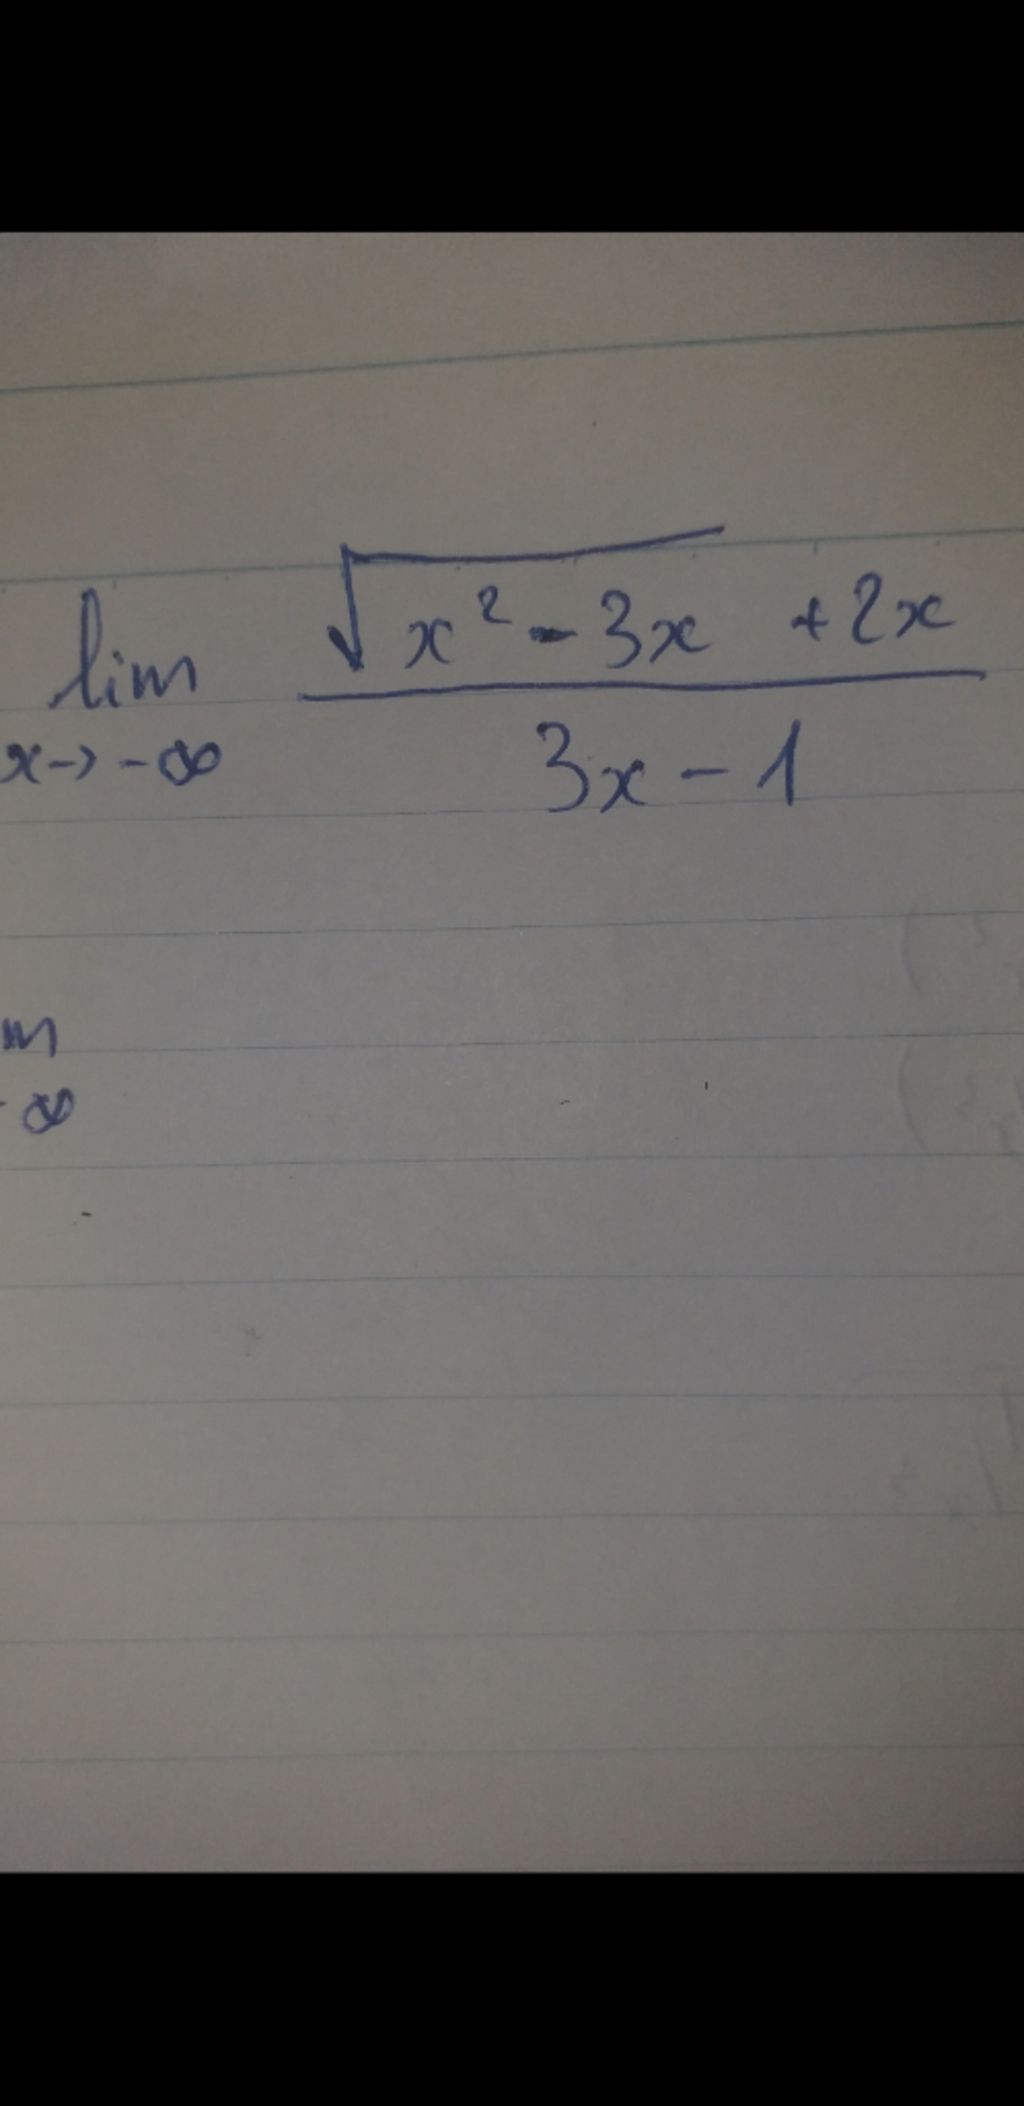 lim √(x² - 3x) + 2x
x→-∞ 3x - 1
m
-∞